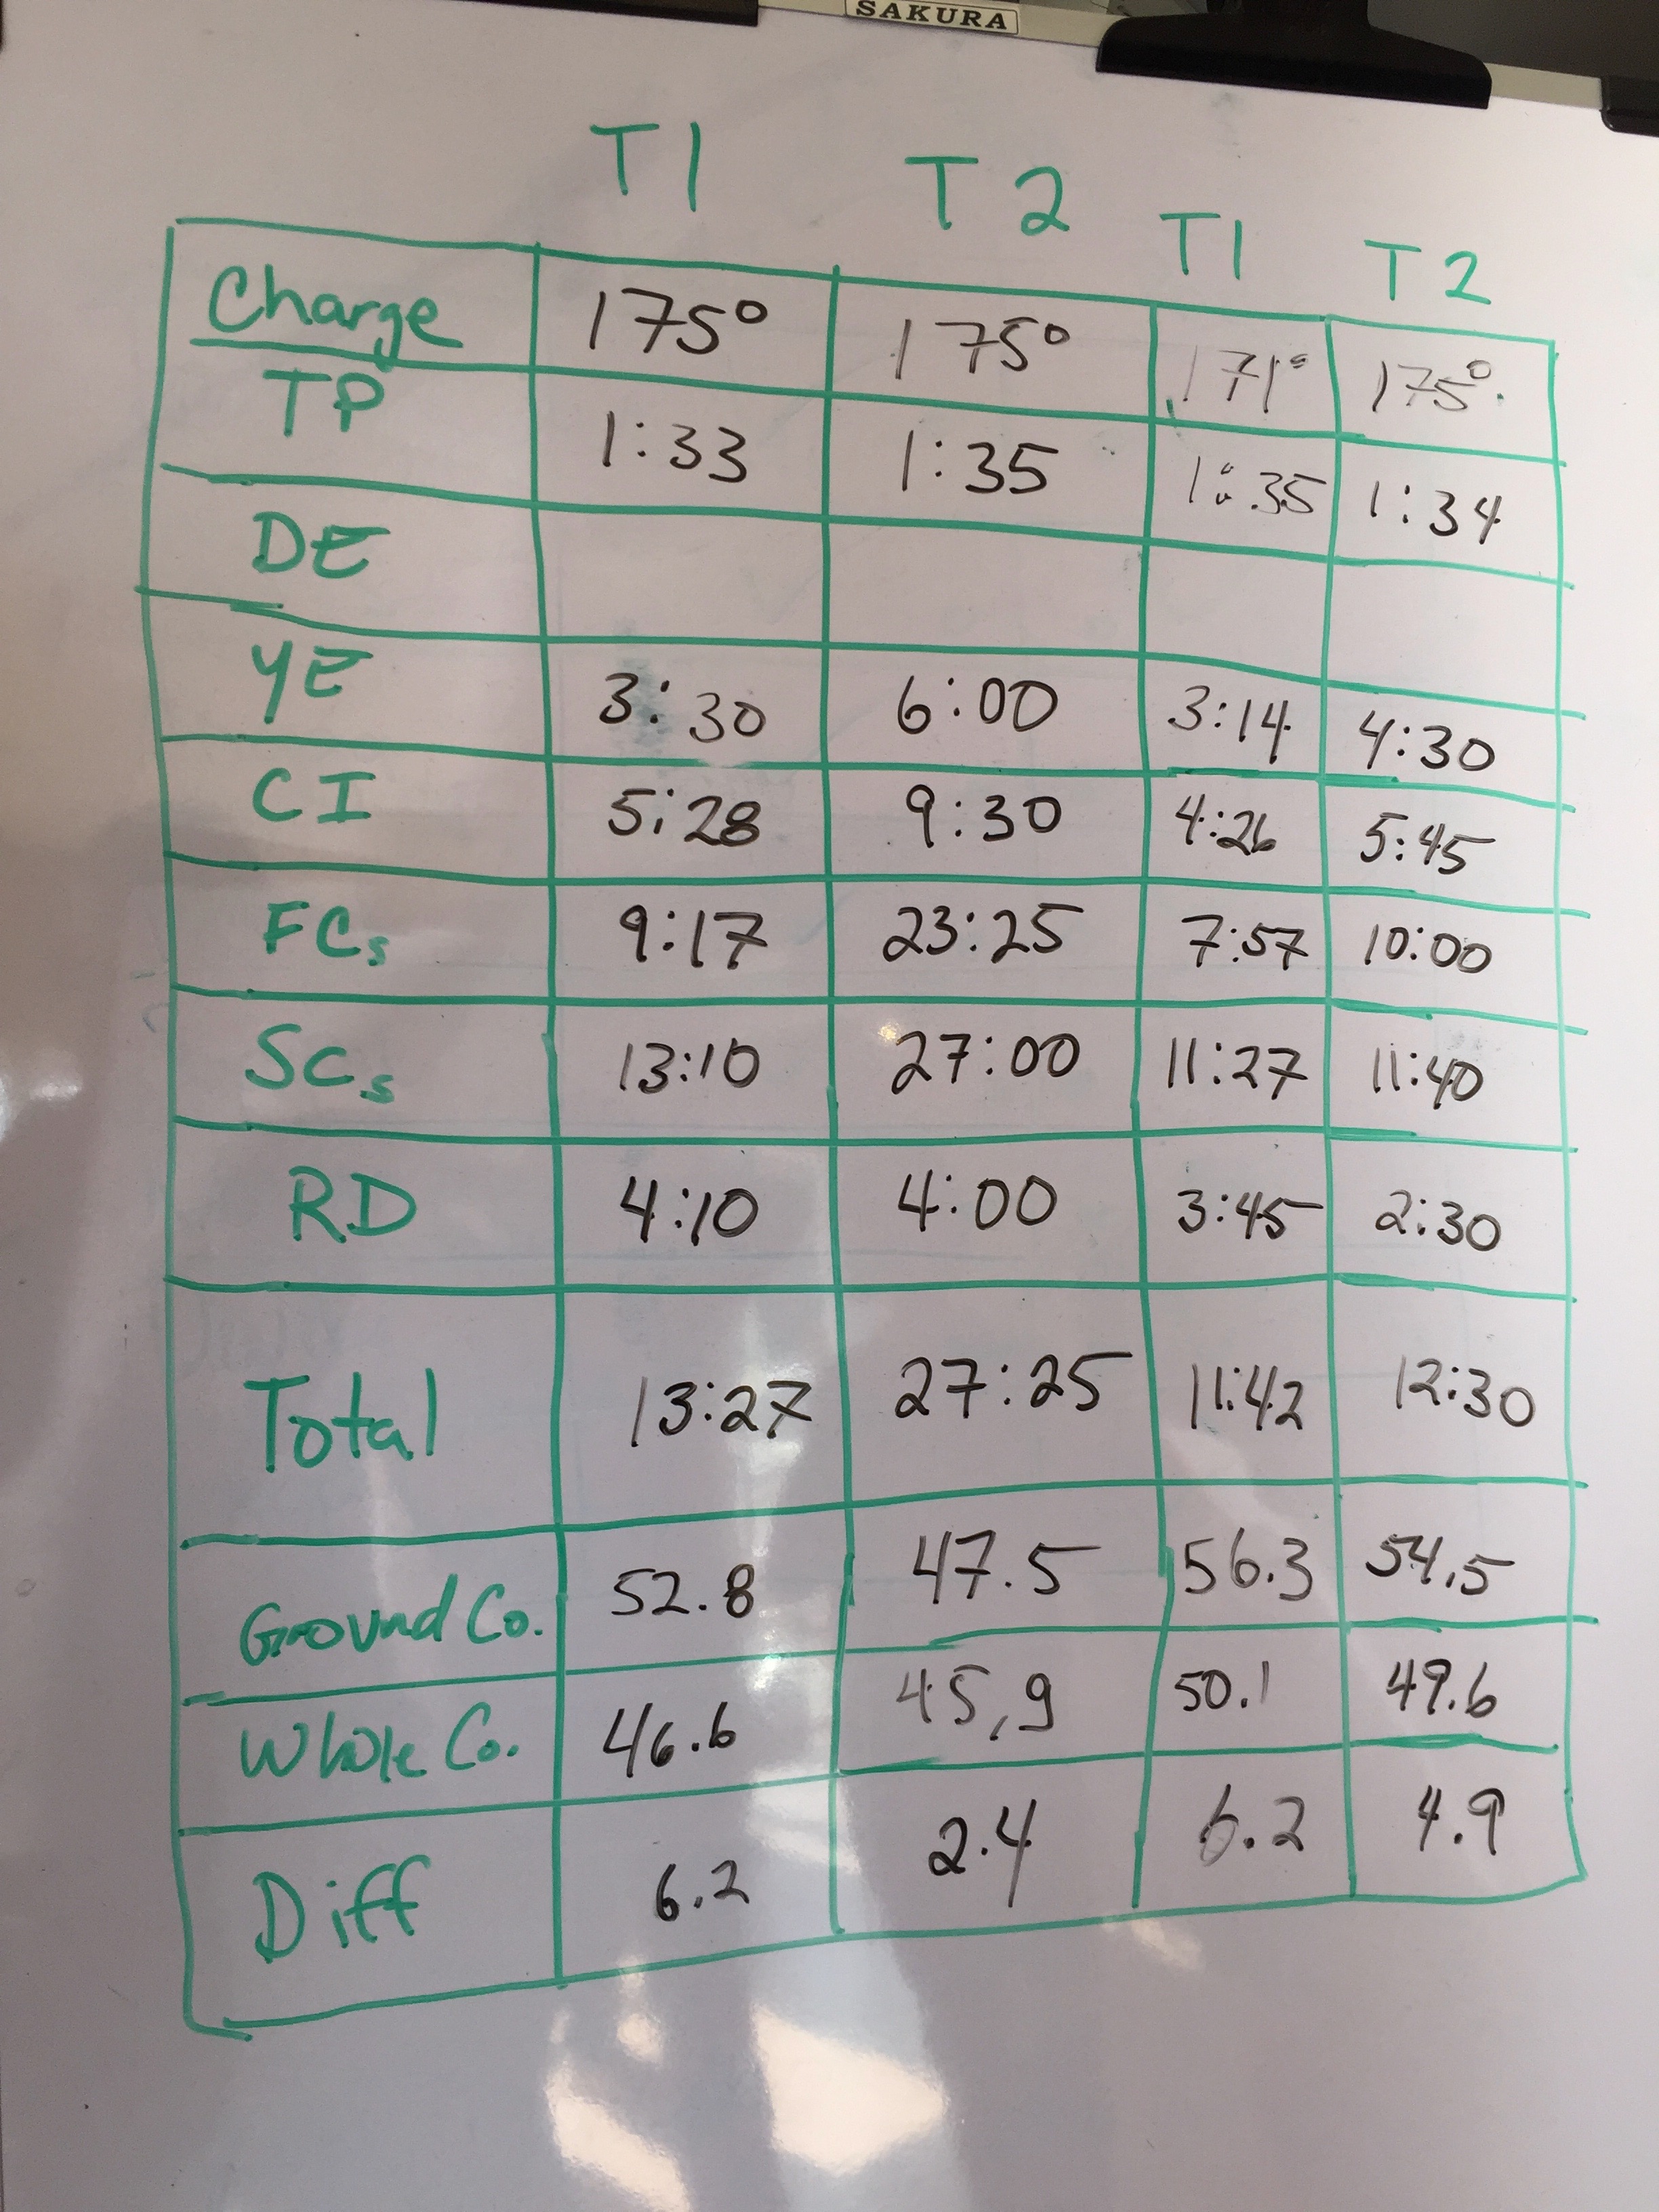 SAKURA
T1 T2 T1 T2
Charge 175° 175° 171° 175°
TP 1:33 1:35 1:35 1:34
DE
YE 3:30 6:00 3:14 4:30
CI 5:28 9:30 4:26 5:45
FCs 9:17 23:25 7:57 10:00
SCs 13:10 27:00 11:27 11:40
RD 4:10 4:00 3:45 2:30
Total 13:27 27:25 11:42 12:30
Ground Co. 52.8 47.5 56.3 54.5
Whole Co. 46.6 45,9 50.1 49.6
Diff 6.2 2.4 6.2 4.9